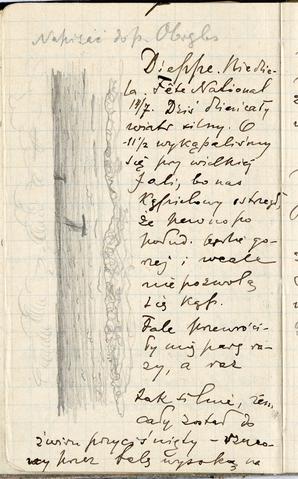 Napisać do p. Obrębs
Dieppe. Niedzie-
la. Fête National
14/7. Dziś dzień cały
wiatr silny. O
11 1/2 wykąpaliśmy
się przy wielkiej
fali, bo nas
kąpielowy ostrzegł
że pewno po
połud. będzie go-
rzej i wcale
nie pozwolą
się kąp.
Fale przewróci-
ły mię parę ra-
zy, a raz
tak silnie, żem
cały został do
żwiru przyciśnięty –
przez falę wysoką na